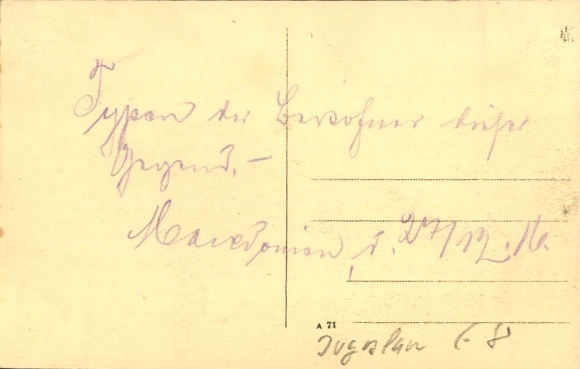 Typen der Bewohner dieser
Gegend.—
Macedonien, d. 27/12.16.
A 71
Jugoslav